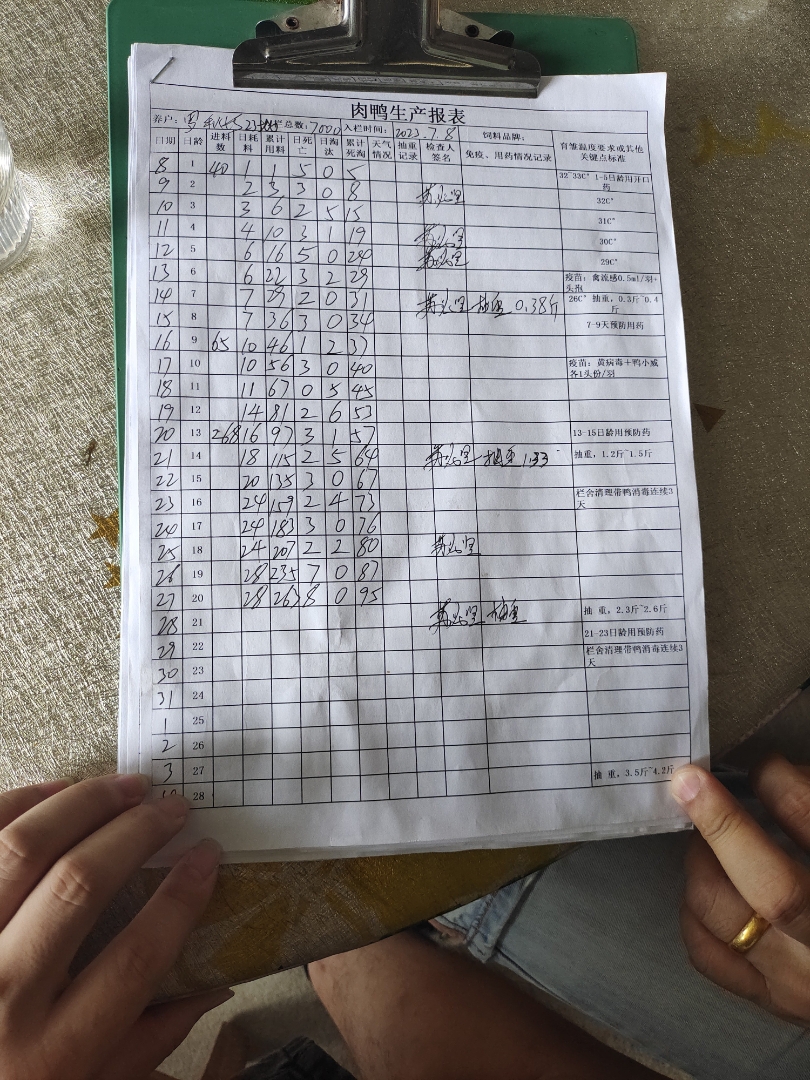 肉鸭生产报表
养户: 栏总数: 7000 入栏时间: 2023.7.8 饲料品牌:
日期 日龄 进料数 日耗料 累计用料 日死亡 日淘汰 累计死淘 天气情况 抽重记录 检查人签名 免疫、用药情况记录 育雏温度要求或其他关键点标准
8 1 40 1 1 5 0 5 32~33C° 1-5日龄用开口药
9 2 2 3 3 0 8 32C°
10 3 3 6 2 5 15 31C°
11 4 4 10 3 1 19 30C°
12 5 6 16 5 0 24 29C°
13 6 6 22 3 2 29 疫苗: 禽流感0.5ml/羽+头孢
14 7 7 29 2 0 31 抽重 0.38斤 26C° 抽重, 0.3斤~0.4斤
15 8 7 36 3 0 34 7-9天预防用药
16 9 65 10 46 1 2 37
17 10 10 56 3 0 40 疫苗: 黄病毒+鸭小威各1头份/羽
18 11 11 67 0 5 45
19 12 14 81 2 6 53
20 13 268 16 97 3 1 57 13-15日龄用预防药
21 14 18 115 2 5 64 抽重 1.33 抽重, 1.2斤~1.5斤
22 15 20 135 3 0 67
23 16 24 159 2 4 73 栏舍清理带鸭消毒连续3天
24 17 24 183 3 0 76
25 18 24 207 2 2 80
26 19 28 235 7 0 87
27 20 28 263 8 0 95
28 21 抽重 抽 重, 2.3斤~2.6斤
29 22 21-23日龄用预防药
30 23 栏舍清理带鸭消毒连续3天
31 24
1 25
2 26
3 27 抽 重, 3.5斤~4.2斤
28